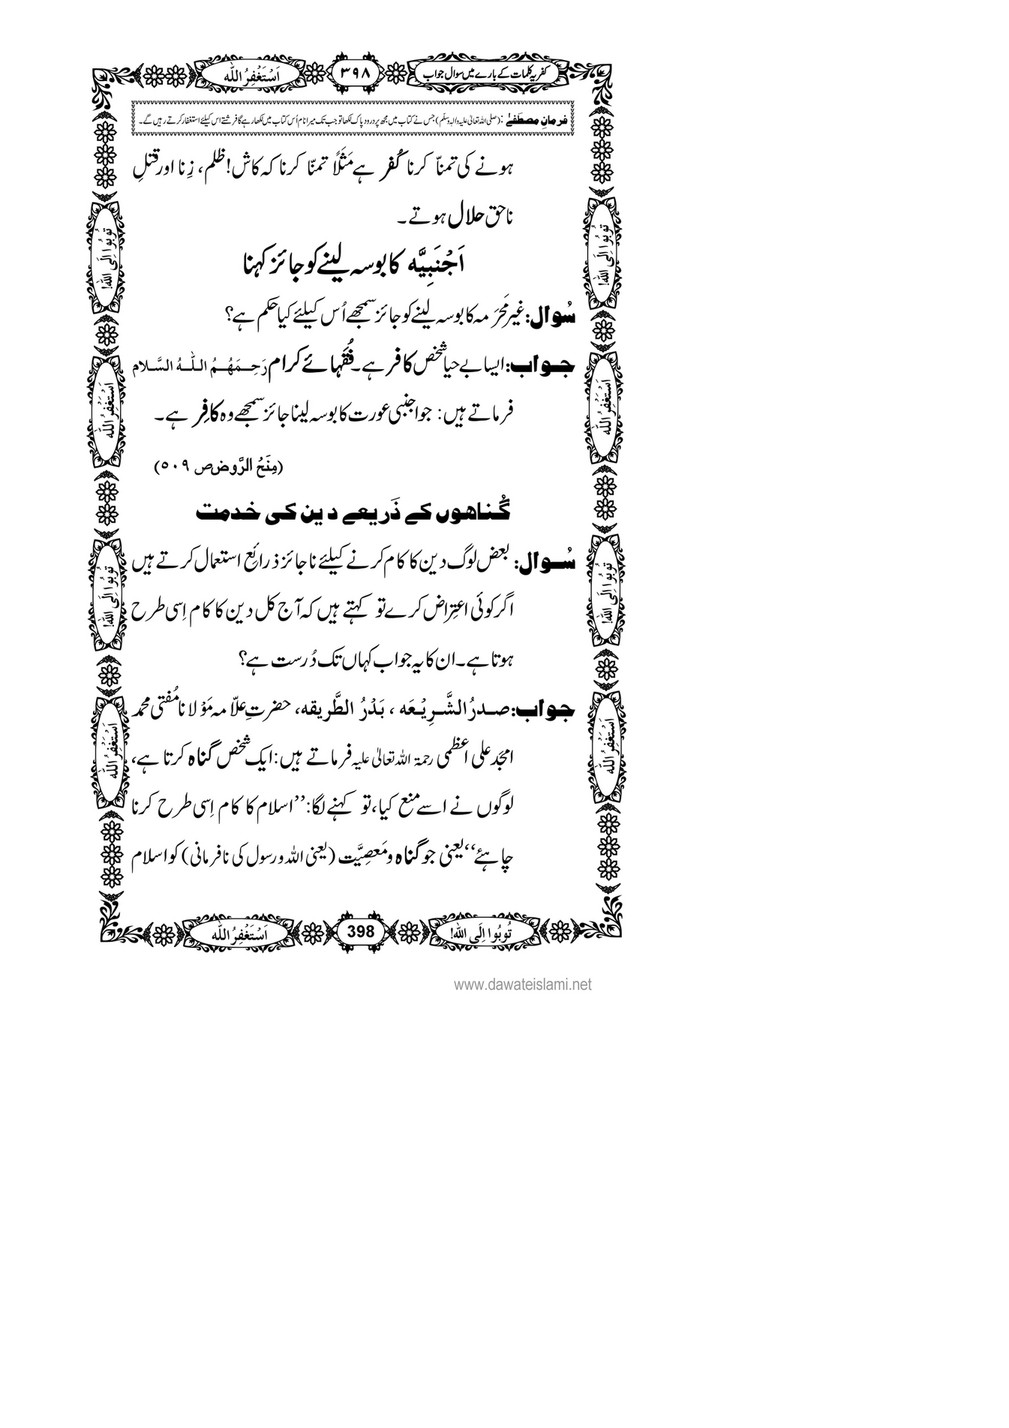 کفریہ کلمات کے بارے میں سوال جواب
۳۹۸
اَسْتَغْفِرُ اللّٰه
فرمانِ مصطفےٰ : (صلی اللہ تعالیٰ علیہ والہٖ وسلّم) جس نے کتاب میں مجھ پر درود پاک لکھا تو جب تک میرا نام اُس کتاب میں لکھا رہے گا فرشتے اس کیلئے استغفار کرتے رہیں گے۔
ہونے کی تمنّا کرنا کُفر ہے مَثَلًا تمنّا کرنا کہ کاش! ظلم، زِنا اور قتلِ
ناحق حلال ہوتے۔
اَجْنَبِیَّہ کا بوسہ لینے کو جائز کہنا
سُوال: غیر مَحرَمہ کا بوسہ لینے کو جائز سمجھے اُس کیلئے کیا حکم ہے؟
جواب: ایسا بے حیا شخص کافر ہے۔ فُقَہائے کرام رَحِمَهُمُ اللّٰهُ السَّلام
فرماتے ہیں: جو اجنبی عورت کا بوسہ لینا جائز سمجھے وہ کافِر ہے۔
(مِنَحُ الرَّوض ص ۵۰۹)
گُناہوں کے ذَرِیعے دین کی خدمت
سُوال: بعض لوگ دین کا کام کرنے کیلئے ناجائز ذرائع استعمال کرتے ہیں
اگر کوئی اعتِراض کرے تو کہتے ہیں کہ آج کل دین کا کام اِسی طرح
ہوتا ہے۔ ان کا یہ جواب کہاں تک دُرست ہے؟
جواب: صدرُ الشَّرِیْعَه ، بَدْرُ الطَّریقه، حضرتِ علّامہ مَوْلانا مُفتی محمد
امجد علی اعظمی رحمۃ اللہ تعالیٰ علیہ فرماتے ہیں: ایک شخص گناہ کرتا ہے،
لوگوں نے اسے منع کیا، تو کہنے لگا: ’’اسلام کا کام اِسی طرح کرنا
چاہئے‘‘ یعنی جو گناہ و مَعصِیَّت (یعنی اللہ و رسول کی نافرمانی) کو اسلام
تُوبُوا اِلَی اللّٰه!
اَسْتَغْفِرُ اللّٰه
تُوبُوا اِلَی اللّٰه!
اَسْتَغْفِرُ اللّٰه
تُوبُوا اِلَی اللّٰه!
اَسْتَغْفِرُ اللّٰه
تُوبُوا اِلَی اللّٰه!
اَسْتَغْفِرُ اللّٰه
تُوبُوا اِلَی اللّٰه!
398
اَسْتَغْفِرُ اللّٰه
www.dawateislami.net